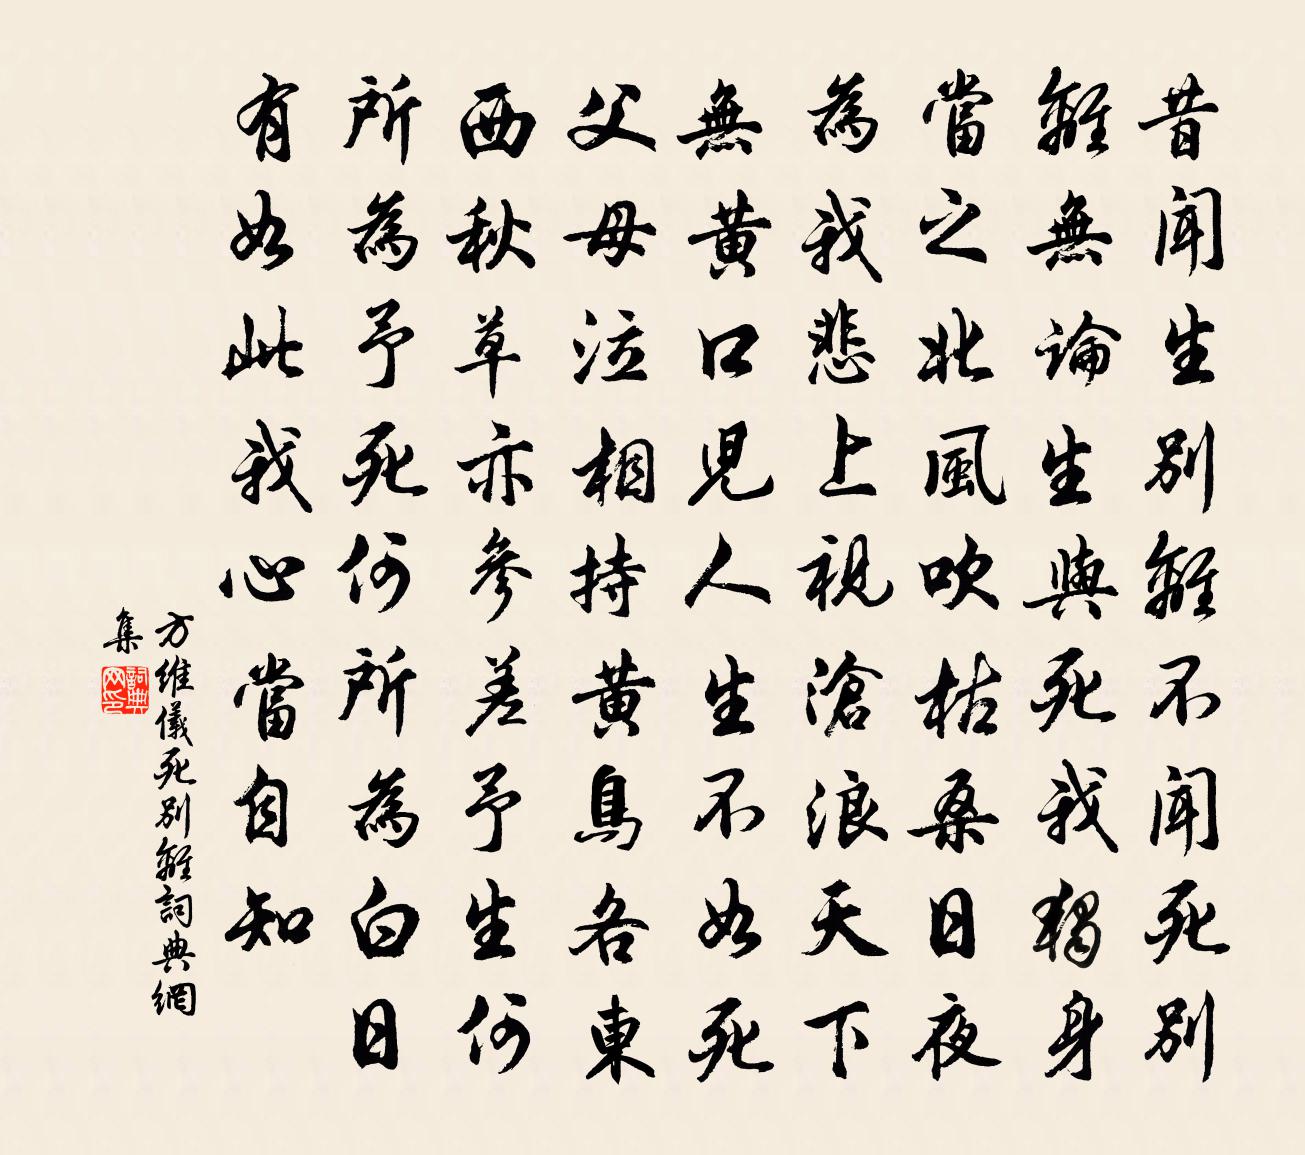 昔聞生別離不聞死別
離無論生與死我獨身
當之北風吹枯桑日夜
為我悲上視滄浪天下
無黃口兒人生不如死
父母泣相持黃鳥各東
西秋草亦參差予生何
所為予死何所為白日
有如此我心當自知
方維儀死別離詞典網
集
詞典網印